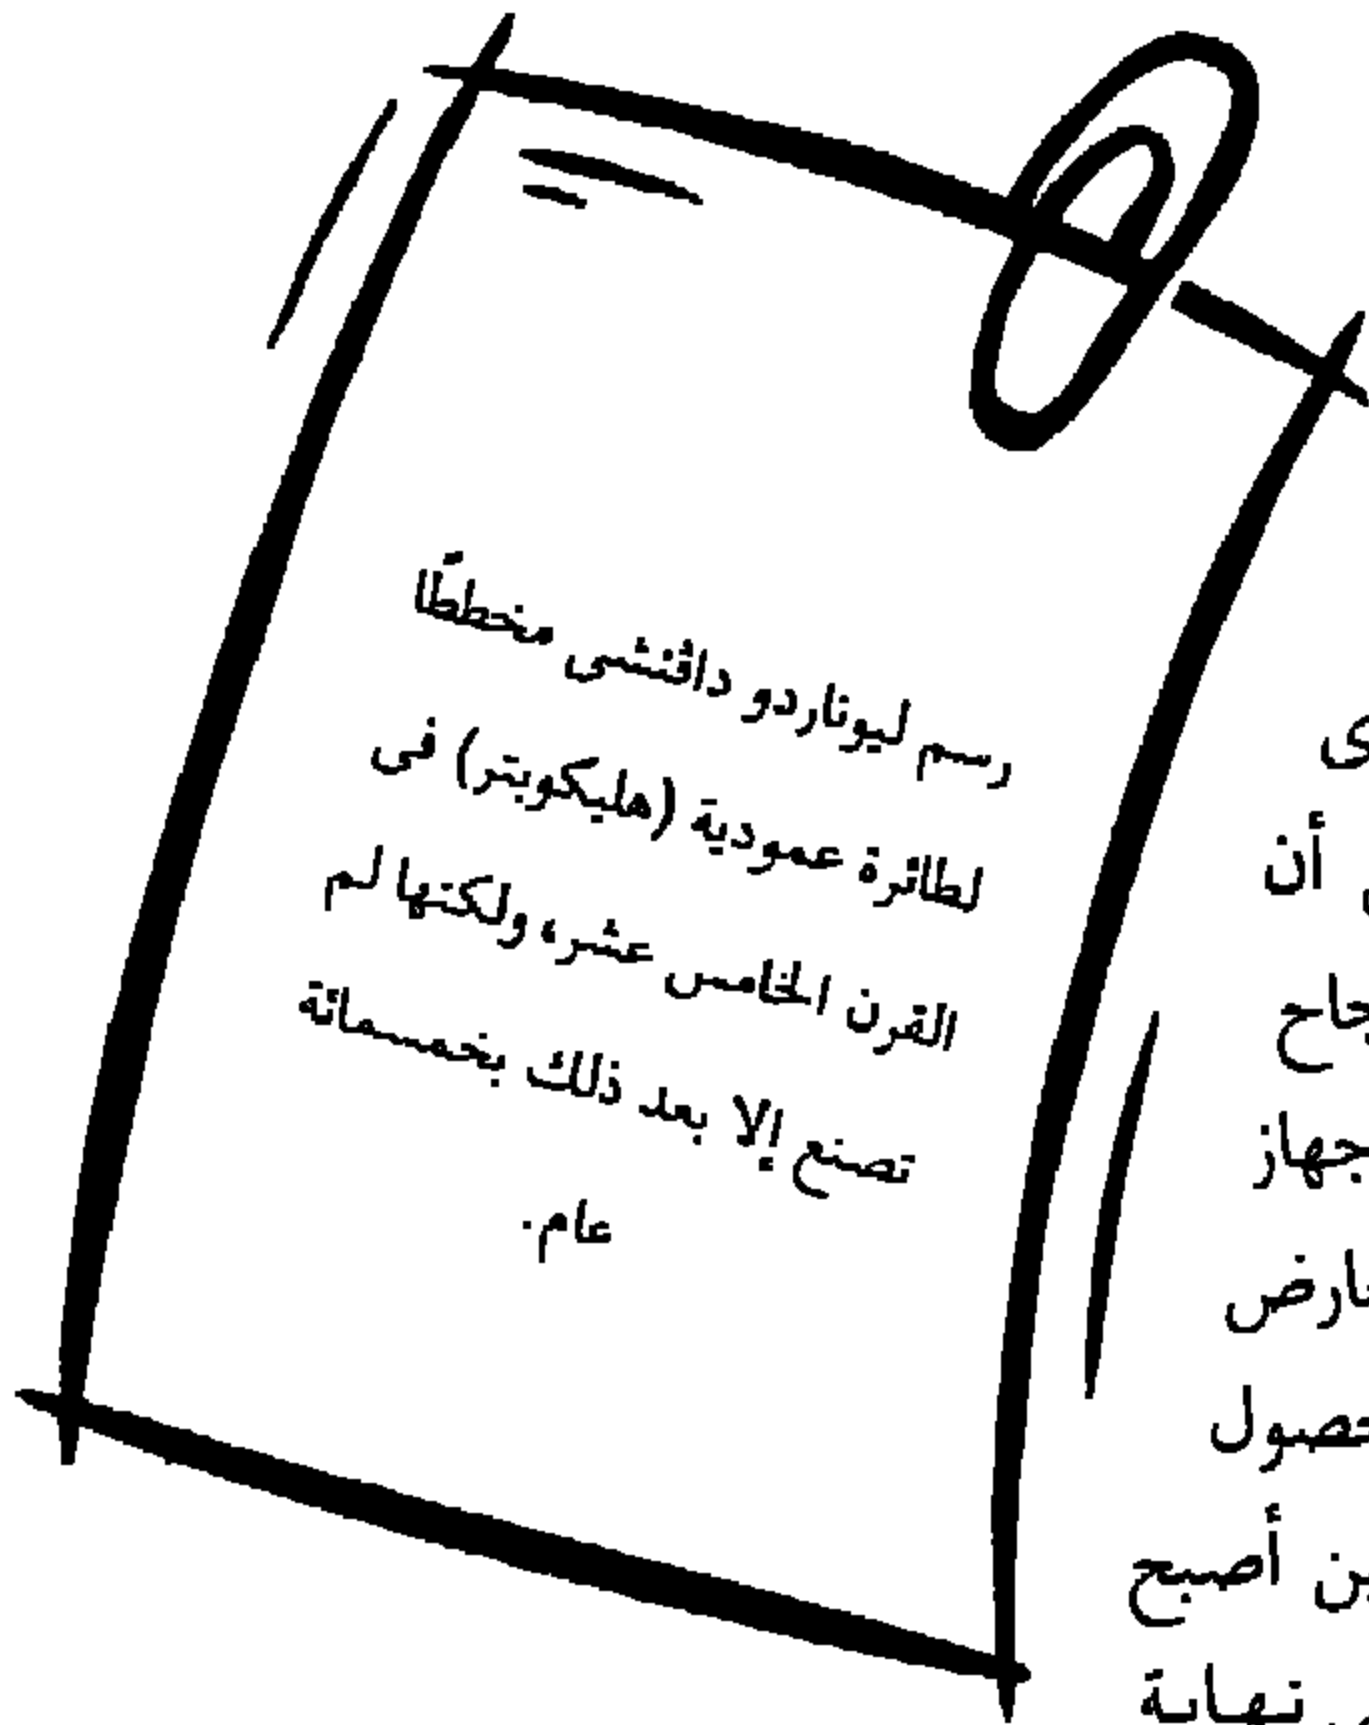 رسم ليوناردو داڤنشى مخططًا
لطائرة عمودية (هليكوبتر) فى
القرن الخامس عشر، ولكنها لم
تصنع إلا بعد ذلك بخمسمائة
عام.
أن
أصبح
نهاية